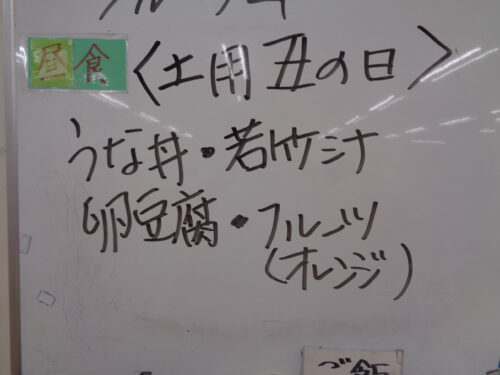 昼食〈土用丑の日〉
うな丼・若竹汁
卵豆腐・フルーツ
(オレンジ)
ご飯